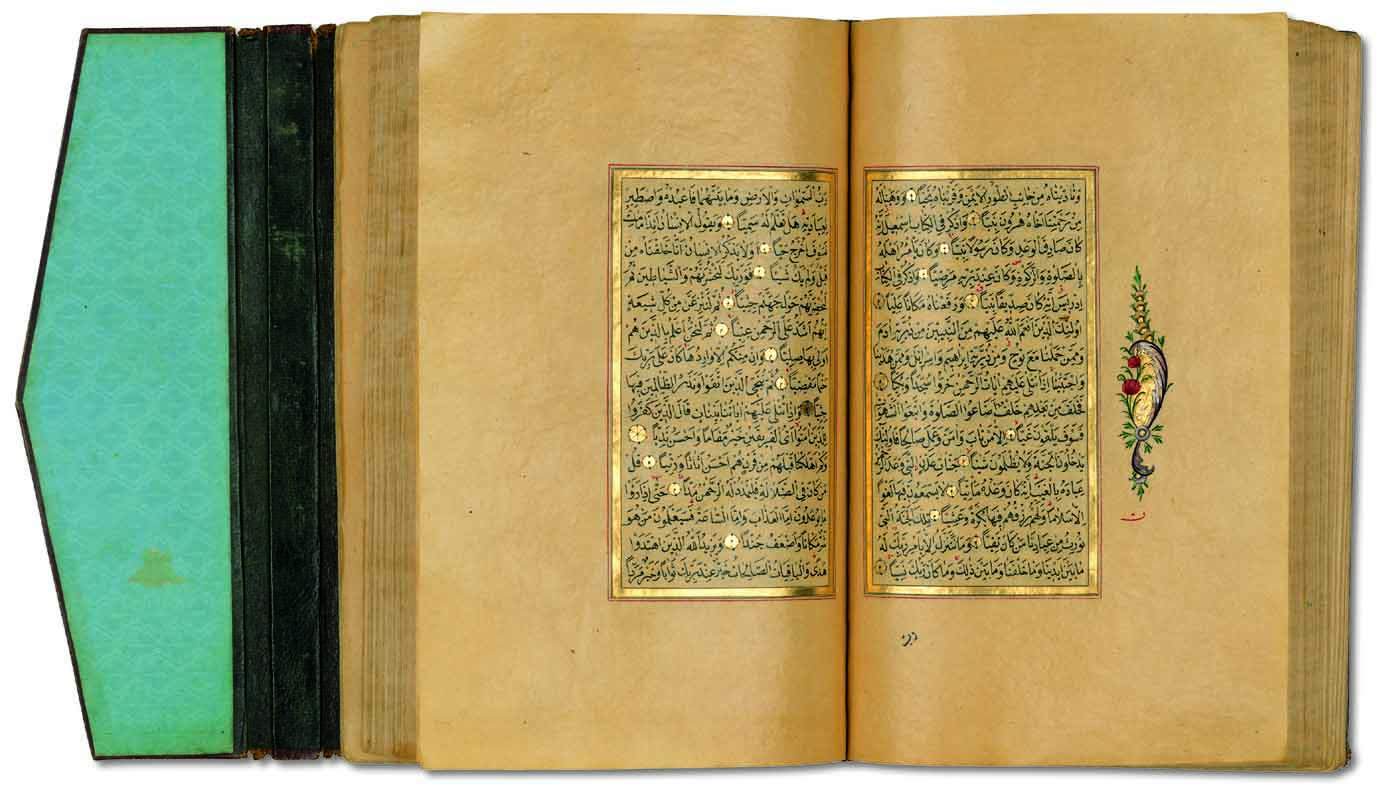 وَنَادَيْنَاهُ مِنْ جَانِبِ الطُّورِ الْاَيْمَنِ وَقَرَّبْنَاهُ نَجِيًّا وَوَهَبْنَا لَهُ
مِنْ رَحْمَتِنَا اَخَاهُ هٰرُونَ نَبِيًّا وَاذْكُرْ فِي الْكِتَابِ اِسْمٰعِيلَ اِنَّهُ
كَانَ صَادِقَ الْوَعْدِ وَكَانَ رَسُولًا نَبِيًّا وَكَانَ يَأْمُرُ اَهْلَهُ
بِالصَّلٰوةِ وَالزَّكٰوةِ وَكَانَ عِنْدَ رَبِّهِ مَرْضِيًّا وَاذْكُرْ فِي الْكِتَابِ
اِدْرِيسَ اِنَّهُ كَانَ صِدِّيقًا نَبِيًّا وَرَفَعْنَاهُ مَكَانًا عَلِيًّا
اُولٰئِكَ الَّذِينَ اَنْعَمَ اللّٰهُ عَلَيْهِمْ مِنَ النَّبِيِّينَ مِنْ ذُرِّيَّةِ اٰدَمَ
وَمِمَّنْ حَمَلْنَا مَعَ نُوحٍ وَمِنْ ذُرِّيَّةِ اِبْرَاهِيمَ وَاِسْرَائِلَ وَمِمَّنْ هَدَيْنَا
وَاجْتَبَيْنَا اِذَا تُتْلٰى عَلَيْهِمْ اٰيَاتُ الرَّحْمٰنِ خَرُّوا سُجَّدًا وَبُكِيًّا
فَخَلَفَ مِنْ بَعْدِهِمْ خَلْفٌ اَضَاعُوا الصَّلٰوةَ وَاتَّبَعُوا الشَّهَوَاتِ
فَسَوْفَ يَلْقَوْنَ غَيًّا اِلَّا مَنْ تَابَ وَاٰمَنَ وَعَمِلَ صَالِحًا فَاُولٰئِكَ
يَدْخُلُونَ الْجَنَّةَ وَلَا يُظْلَمُونَ شَيْئًا جَنَّاتِ عَدْنٍ الَّتِي وَعَدَ الرَّحْمٰنُ
عِبَادَهُ بِالْغَيْبِ اِنَّهُ كَانَ وَعْدُهُ مَأْتِيًّا لَا يَسْمَعُونَ فِيهَا لَغْوًا
اِلَّا سَلَامًا وَلَهُمْ رِزْقُهُمْ فِيهَا بُكْرَةً وَعَشِيًّا تِلْكَ الْجَنَّةُ الَّتِي
نُورِثُ مِنْ عِبَادِنَا مَنْ كَانَ تَقِيًّا وَمَا نَتَنَزَّلُ اِلَّا بِاَمْرِ رَبِّكَ لَهُ
مَا بَيْنَ اَيْدِينَا وَمَا خَلْفَنَا وَمَا بَيْنَ ذٰلِكَ وَمَا كَانَ رَبُّكَ نَسِيًّا
رَبُّ
رَبُّ السَّمٰوَاتِ وَالْاَرْضِ وَمَا بَيْنَهُمَا فَاعْبُدْهُ وَاصْطَبِرْ
لِعِبَادَتِهِ هَلْ تَعْلَمُ لَهُ سَمِيًّا وَيَقُولُ الْاِنْسَانُ ءَاِذَا مَا مِتُّ
لَسَوْفَ اُخْرَجُ حَيًّا اَوَلَا يَذْكُرُ الْاِنْسَانُ اَنَّا خَلَقْنَاهُ مِنْ
قَبْلُ وَلَمْ يَكُ شَيْئًا فَوَرَبِّكَ لَنَحْشُرَنَّهُمْ وَالشَّيَاطِينَ ثُمَّ
لَنُحْضِرَنَّهُمْ حَوْلَ جَهَنَّمَ جِثِيًّا ثُمَّ لَنَنْزِعَنَّ مِنْ كُلِّ شِيعَةٍ
اَيُّهُمْ اَشَدُّ عَلَى الرَّحْمٰنِ عِتِيًّا ثُمَّ لَنَحْنُ اَعْلَمُ بِالَّذِينَ هُمْ
اَوْلٰى بِهَا صِلِيًّا وَاِنْ مِنْكُمْ اِلَّا وَارِدُهَا كَانَ عَلٰى رَبِّكَ
حَتْمًا مَقْضِيًّا ثُمَّ نُنَجِّي الَّذِينَ اتَّقَوْا وَنَذَرُ الظَّالِمِينَ فِيهَا
جِثِيًّا وَاِذَا تُتْلٰى عَلَيْهِمْ اٰيَاتُنَا بَيِّنَاتٍ قَالَ الَّذِينَ كَفَرُوا
لِلَّذِينَ اٰمَنُوا اَيُّ الْفَرِيقَيْنِ خَيْرٌ مَقَامًا وَاَحْسَنُ نَدِيًّا
وَكَمْ اَهْلَكْنَا قَبْلَهُمْ مِنْ قَرْنٍ هُمْ اَحْسَنُ اَثَاثًا وَرِئْيًا قُلْ
مَنْ كَانَ فِي الضَّلَالَةِ فَلْيَمْدُدْ لَهُ الرَّحْمٰنُ مَدًّا حَتّٰى اِذَا رَاَوْا
مَا يُوعَدُونَ اِمَّا الْعَذَابَ وَاِمَّا السَّاعَةَ فَسَيَعْلَمُونَ مَنْ هُوَ
شَرٌّ مَكَانًا وَاَضْعَفُ جُنْدًا وَيَزِيدُ اللّٰهُ الَّذِينَ اهْتَدَوْا
هُدًى وَالْبَاقِيَاتُ الصَّالِحَاتُ خَيْرٌ عِنْدَ رَبِّكَ ثَوَابًا وَخَيْرٌ مَرَدًّا